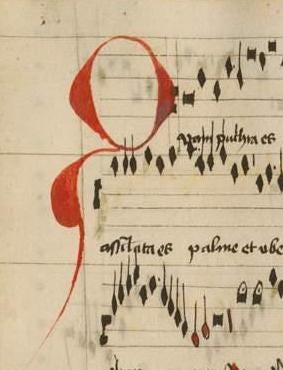 Quam pulchra es
assilata es palme et vbe